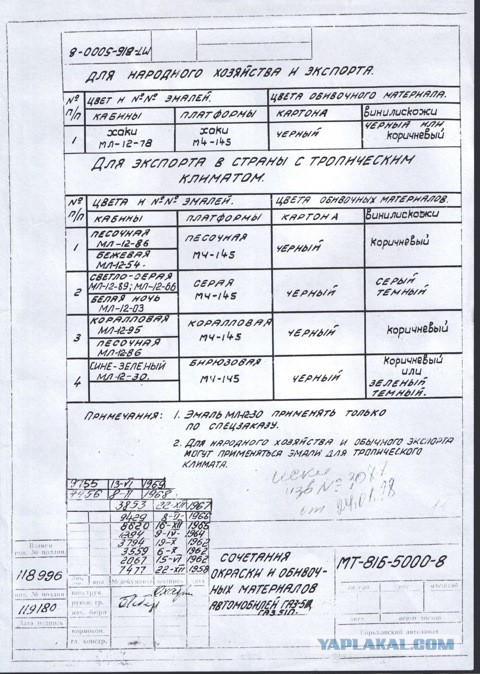 МТ-81Б-5000-8
ДЛЯ НАРОДНОГО ХОЗЯЙСТВА И ЭКСПОРТА.
№ п/п ЦВЕТ И №№ ЭМАЛЕЙ. ЦВЕТА ОБИВОЧНОГО МАТЕРИАЛА.
КАБИНЫ ПЛАТФОРМЫ КАРТОНА ВИНИЛИСКОЖИ
1 ХАКИ МЛ-12-78 ХАКИ МЧ-145 ЧЕРНЫЙ ЧЕРНЫЙ ИЛИ КОРИЧНЕВЫЙ
ДЛЯ ЭКСПОРТА В СТРАНЫ С ТРОПИЧЕСКИМ
КЛИМАТОМ.
№ п/п ЦВЕТА И №№ ЭМАЛЕЙ. ЦВЕТА ОБИВОЧНЫХ МАТЕРИАЛОВ.
КАБИНЫ ПЛАТФОРМЫ КАРТОНА ВИНИЛИСКОЖИ
1 ПЕСОЧНАЯ МЛ-12-86 ПЕСОЧНАЯ МЧ-145 ЧЕРНЫЙ КОРИЧНЕВЫЙ
БЕЖЕВАЯ МЛ-12-54.
2 СВЕТЛО-СЕРАЯ МЛ-12-89; МЛ-12-66 СЕРАЯ МЧ-145 ЧЕРНЫЙ СЕРЫЙ ТЕМНЫЙ
БЕЛАЯ НОЧЬ МЛ-12-03
3 КОРАЛЛОВАЯ МЛ-12-95 КОРАЛЛОВАЯ МЧ-145 ЧЕРНЫЙ КОРИЧНЕВЫЙ
ПЕСОЧНАЯ МЛ-12-86
4 СИНЕ-ЗЕЛЕНЫЙ МЛ-12-30. БИРЮЗОВАЯ МЧ-145 ЧЕРНЫЙ КОРИЧНЕВЫЙ ИЛИ ЗЕЛЕНЫЙ ТЕМНЫЙ.
ПРИМЕЧАНИЯ: 1. ЭМАЛЬ МЛ-12-30 ПРИМЕНЯТЬ ТОЛЬКО
ПО СПЕЦЗАКАЗУ.
2. ДЛЯ НАРОДНОГО ХОЗЯЙСТВА И ОБЫЧНОГО ЭКСПОРТА
МОГУТ ПРИМЕНЯТЬСЯ ЭМАЛИ ДЛЯ ТРОПИЧЕСКОГО
КЛИМАТА.
9755 13-VI 1969
7456 8-II 1968
3853 22-XII 1967
9429 8-II 1966
8620 16-XII 1965
1394 9-IV 1964
3794 19-X 1962
3559 6-X 1962
2067 15-VI 1962
7477 22-XII 1959
118996
119180
Дата подпись
СОЧЕТАНИЯ
ОКРАСКИ И ОБИВОЧ-
НЫХ МАТЕРИАЛОВ
АВТОМОБИЛЕЙ ГАЗ-51А,
ГАЗ 51П.
МТ-81Б-5000-8
YAPLAKAL.COM